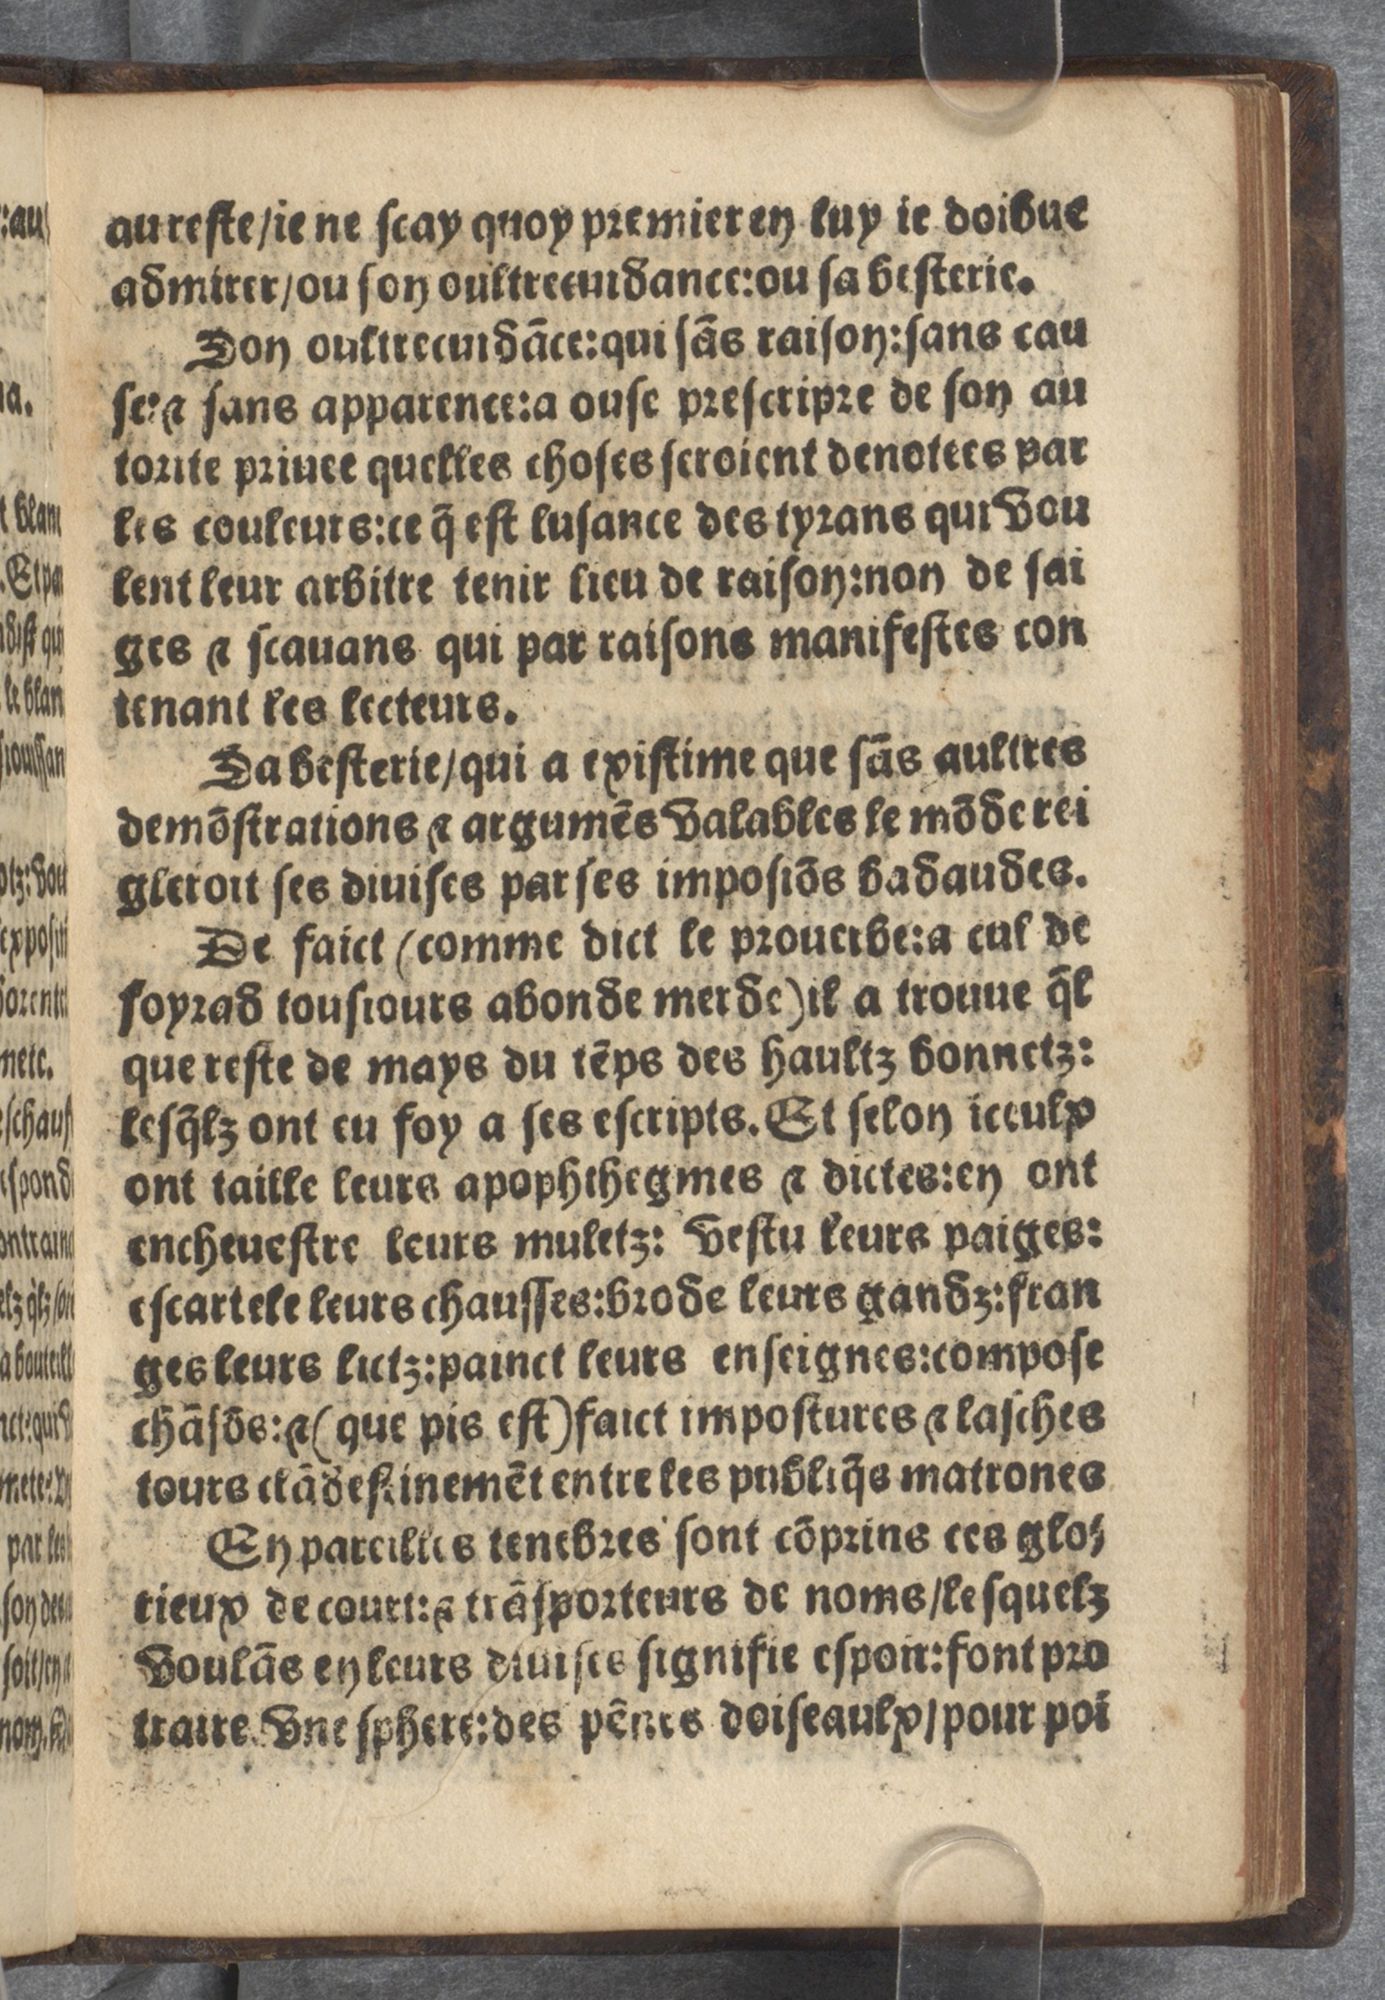 au reste/ie ne scay quoy premier en luy ie doibue
admirer/ou son oultrecuidance:ou sa besterie.
Son oultrecuidāce:qui sās raison:sans cau
se:⁊ sans apparence:a ouse prescripre de son au
torite priuee quelles choses seroient denotees par
les couleurs:ce q̄ est lusance des tyrans qui vou
lent leur arbitre tenir lieu de raison:non de sai
ges ⁊ scauans qui par raisons manifestes con
tenant les lecteurs.
Sa besterie/qui a existime que sās aultres
demōstrations ⁊ argumēs valables le mōde rei
gleroit ses diuises par ses imposiōs badaudes.
De faict (comme dict le prouerbe:a cul de
foyrad tousiours abonde merde)il a trouue q̄l
que reste de mays du tēps des haultz bonnetz:
lesq̄lz ont eu foy a ses escripts. Et selon iceulx
ont taille leurs apophthegmes ⁊ dictes:en ont
encheuestre leurs muletz: vestu leurs paiges:
escartele leurs chausses:brode leurs gandz:fran
ges leurs lictz:painct leurs enseignes:compose
chāsōs:⁊(que pis est)faict impostures ⁊ lasches
tours clādestinemēt entre les publiq̄s matrones
En pareilles tenebres sont cōprins ces glo⸗
rieux de court:⁊ trāsporteurs de noms/lesquelz
voulās en leurs diuises signifie espoir:font pro
traire vne sphere:des pēnes doiseaulx/pour poi